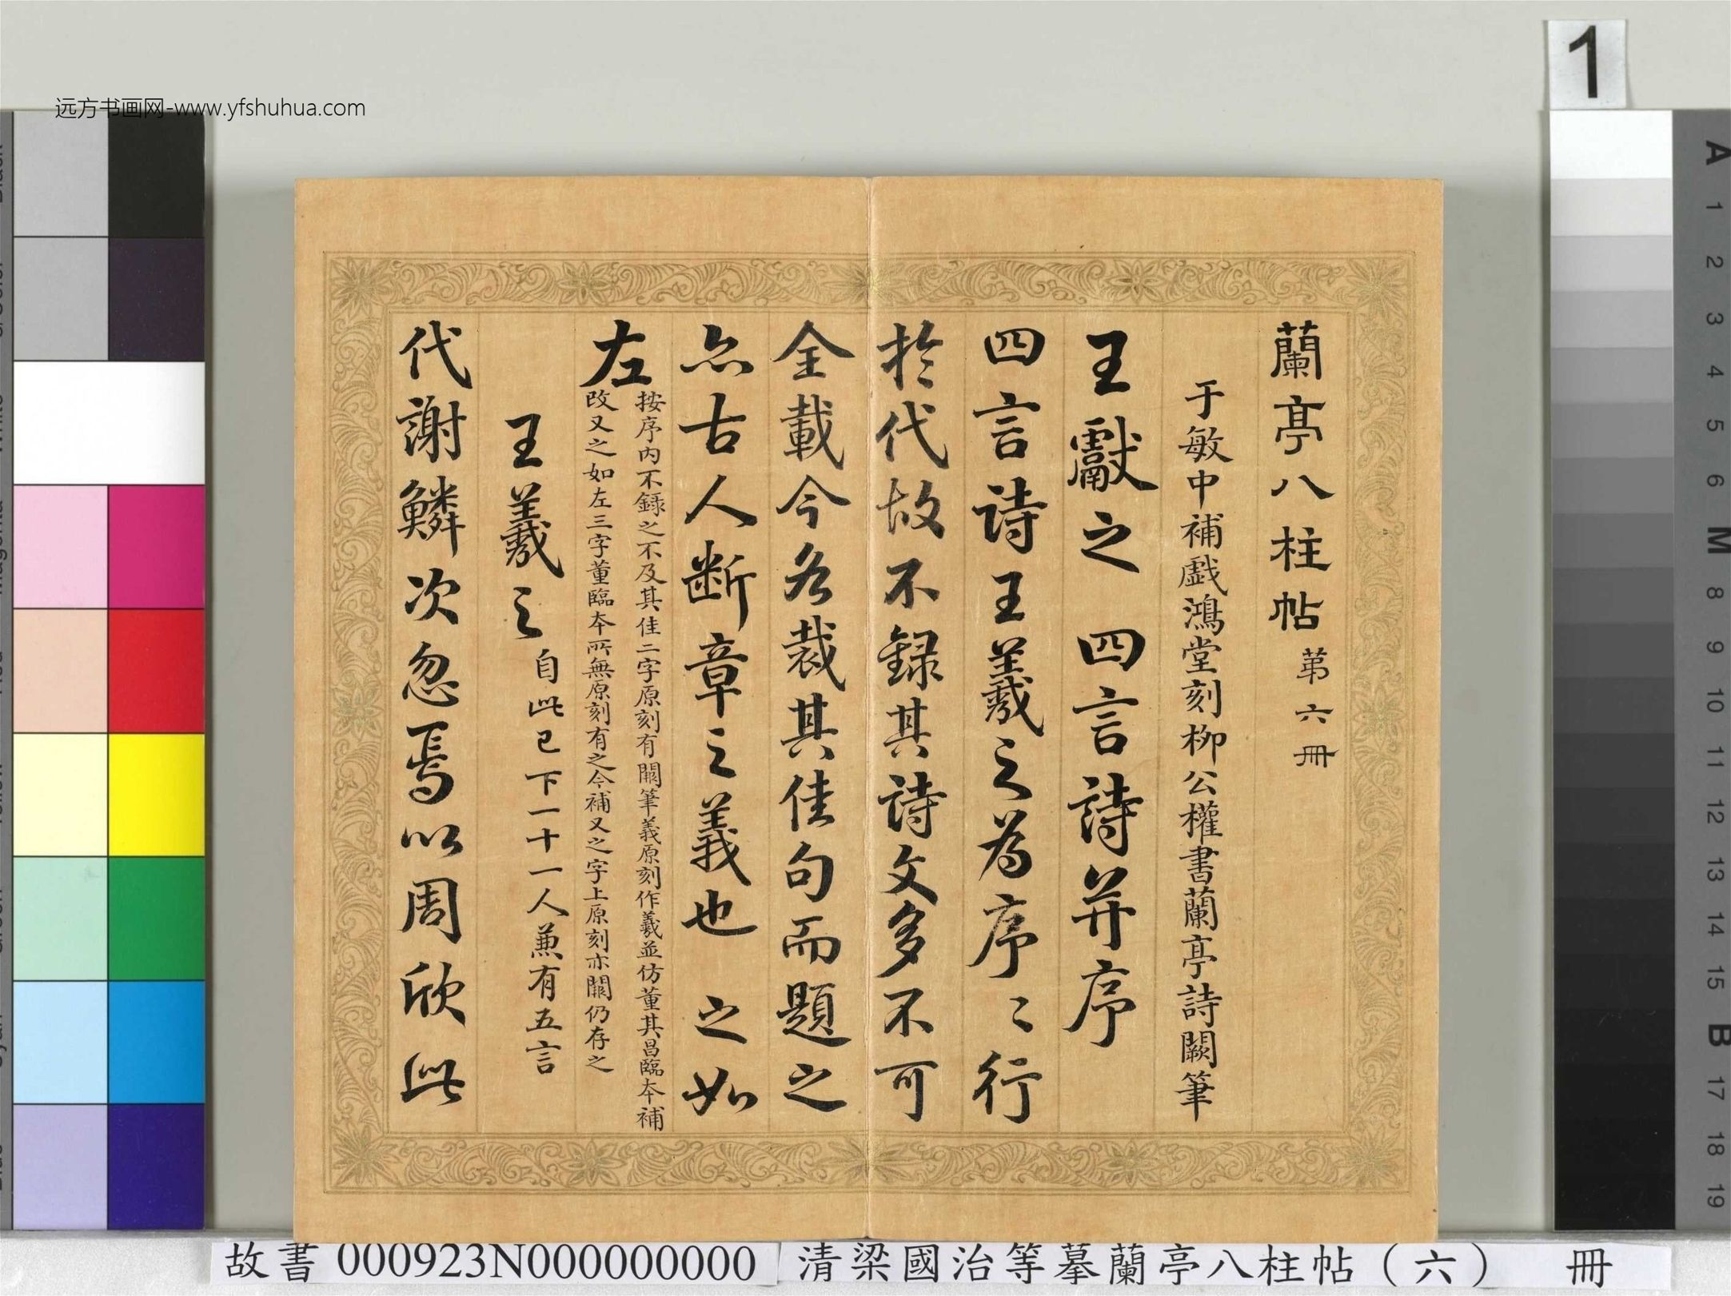 远方书画网-www.yfshuhua.com
1
蘭亭八柱帖第六冊
于敏中補戲鴻堂刻柳公權書蘭亭詩闕筆
王獻之 四言詩并序
四言詩王羲之為序〻行
於代故不録其詩文多不可
全載今各裁其佳句而題之
亦古人斷章之義也 之如
左按序內不録之不及其佳二字原刻有闕筆義原刻作羲並仿董其昌臨本補
改又之如左三字董臨本所無原刻有之今補又之字上原刻亦闕仍存之
王羲之自此已下一十一人兼有五言
代謝鱗次忽焉以周欣此
A 1 2 3 4 5 6 M 8 9 10 11 12 13 14 15 B 17 18 19
故書 000923N000000000
清梁國治等摹蘭亭八柱帖（六） 冊